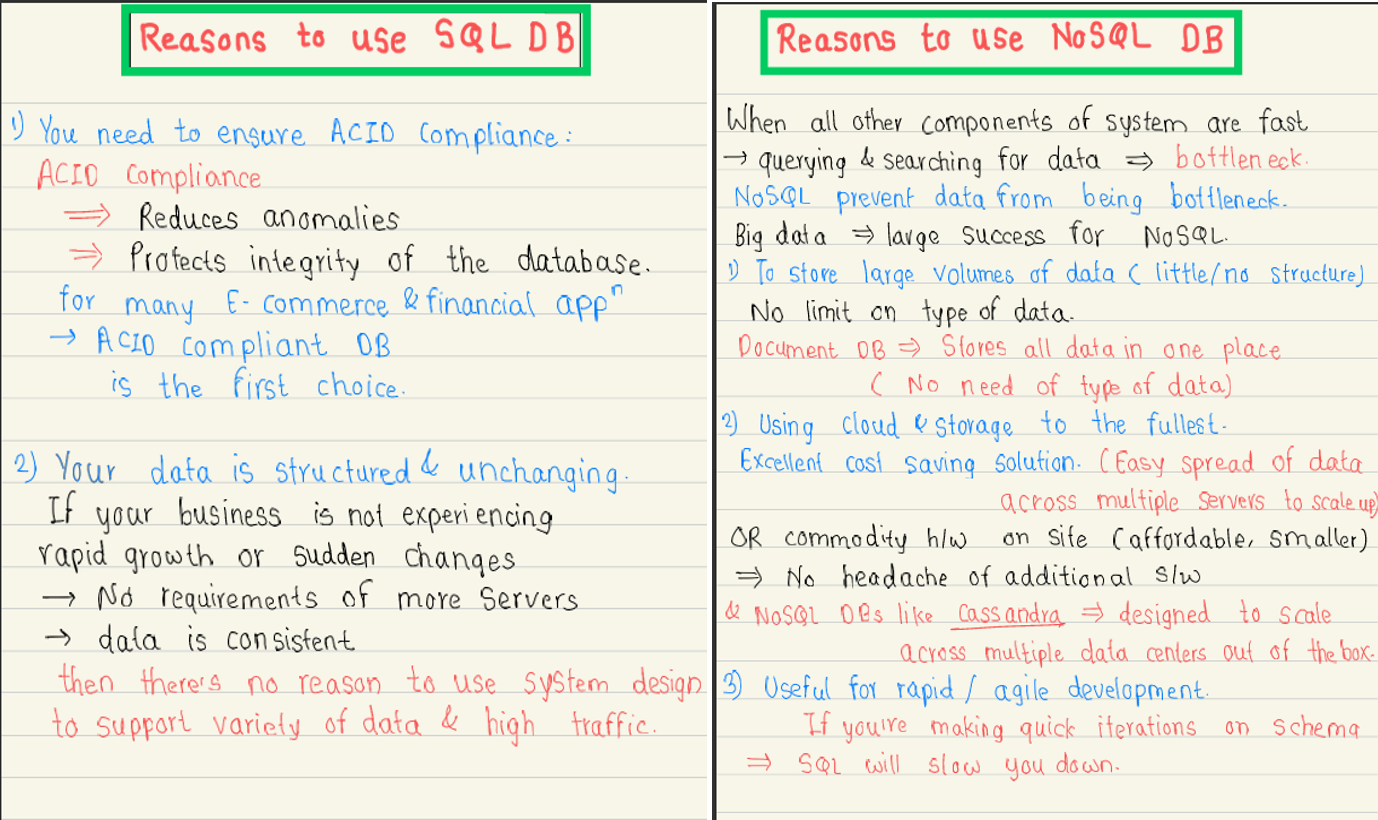 Reasons to use SQL DB
1) You need to ensure ACID Compliance:
ACID Compliance
⇒ Reduces anomalies
⇒ Protects integrity of the database.
for many E-commerce & financial appⁿ
→ ACID compliant DB
is the first choice.
2) Your data is structured & unchanging.
If your business is not experiencing
rapid growth or sudden changes
→ No requirements of more servers
→ data is consistent
then there's no reason to use system design
to support variety of data & high traffic.
Reasons to use NoSQL DB
When all other components of system are fast
→ querying & searching for data ⇒ bottleneck.
NoSQL prevent data from being bottleneck.
Big data ⇒ large success for NoSQL.
1) To store large volumes of data (little/no structure)
No limit on type of data.
Document DB ⇒ Stores all data in one place
(No need of type of data)
2) Using cloud & storage to the fullest.
Excellent cost saving solution. (Easy spread of data
across multiple servers to scale up)
OR commodity h/w on site (affordable, smaller)
⇒ No headache of additional s/w
& NoSQL DBs like Cassandra ⇒ designed to scale
across multiple data centers out of the box.
3) Useful for rapid / agile development.
If you're making quick iterations on schema
⇒ SQL will slow you down.